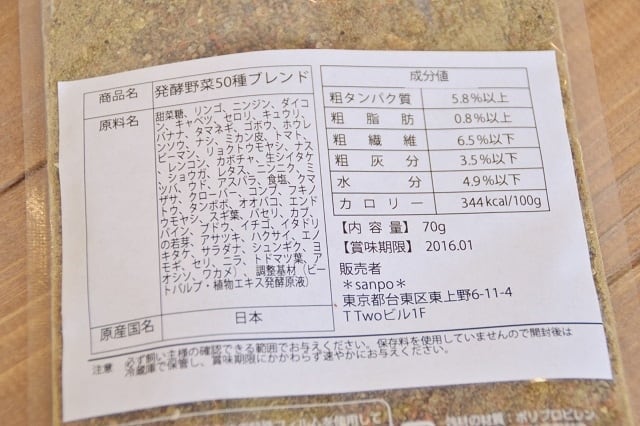 商品名 発酵野菜50種ブレンド
原料名
甜菜糖、リンゴ、ニンジン、ダイコ
ン、キャベツ、セロリ、キュウリ、
バナナ、タマネギ、ゴボウ、ホウレ
ンソウ、ナシ、ミカン皮、トマト、
ピーマン、リョクトウモヤシ、ナス
、レンコン、カボチャ、生シイタケ
、ショウガ、レタス、ニンニク、ミ
ツバ、ウド、アスパラ、食塩、クマ
ザサ、クローバー、コンブ、フキノ
トウ、タンポポ、オオバコ、エンド
ウモヤシ、スギ葉、パセリ、カブ、
パイン、ブドウ、イチゴ、イタドリ
の若芽、アサツキ、ハクサイ、エノ
キタケ、サラダナ、シュンギク、ヨ
モギ、セリ、ニラ、トドマツ葉、ア
オシソ、ワカメ）、調整基材（ビー
トパルプ・植物エキス発酵原液）
原産国名 日本
成分値
粗タンパク質 5.8%以上
粗脂肪 0.8%以上
粗繊維 6.5%以下
粗灰分 3.5%以下
水分 4.9%以下
カロリー 344kcal/100g
【内容量】 70g
【賞味期限】 2016.01
販売者
＊sanpo＊
東京都台東区東上野6-11-4
T Twoビル1F
注意 必ず飼い主様の確認できる範囲でお与えください。保存料を使用していませんので開封後は
冷蔵庫で保管し、賞味期限にかかわらず速やかにお与えください。